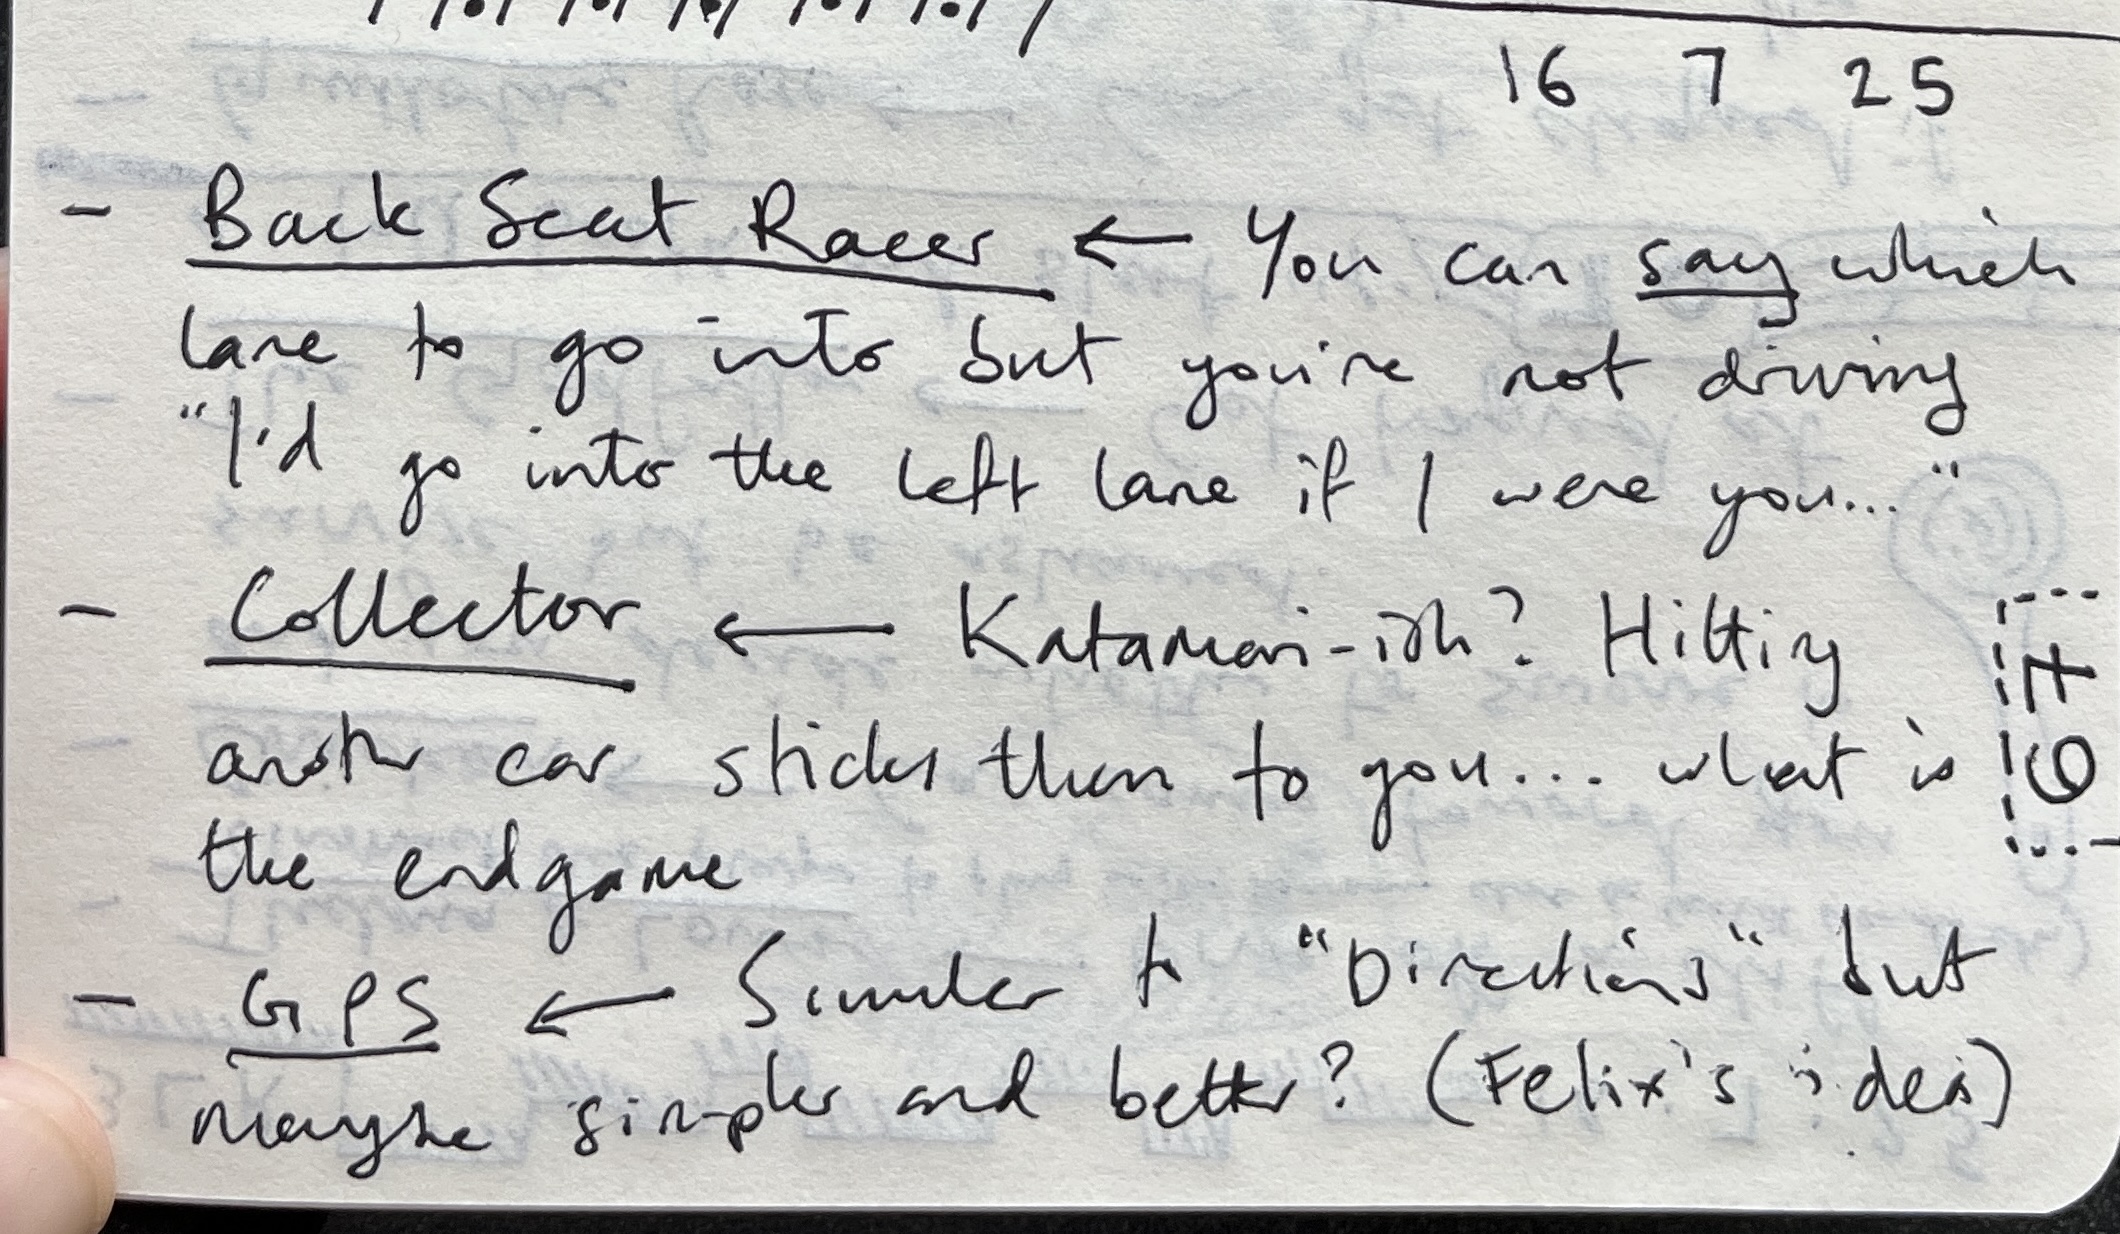 16 7 25
- Back Seat Racer ← You can say which
lane to go into but you're not driving
"I'd go into the left lane if I were you..."
- Collector ← Katamari-ish? Hitting
another car sticks them to you... what is
the endgame
- GPS ← Similar to "Directions" but
maybe simpler and better? (Felix's idea)